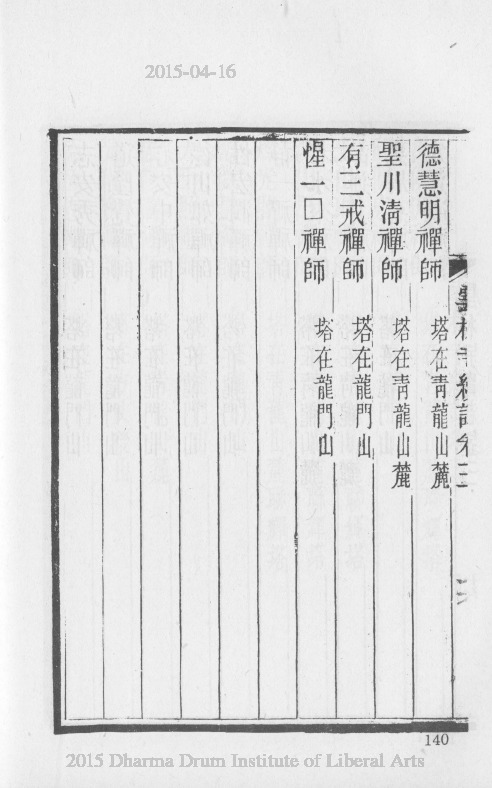 2015-04-16
德慧明禪師 塔在靑龍山麓
聖川淸禪師 塔在靑龍山麓
有三戒禪師 塔在龍門山
惺一□禪師 塔在龍門山
140
2015 Dharma Drum Institute of Liberal Arts